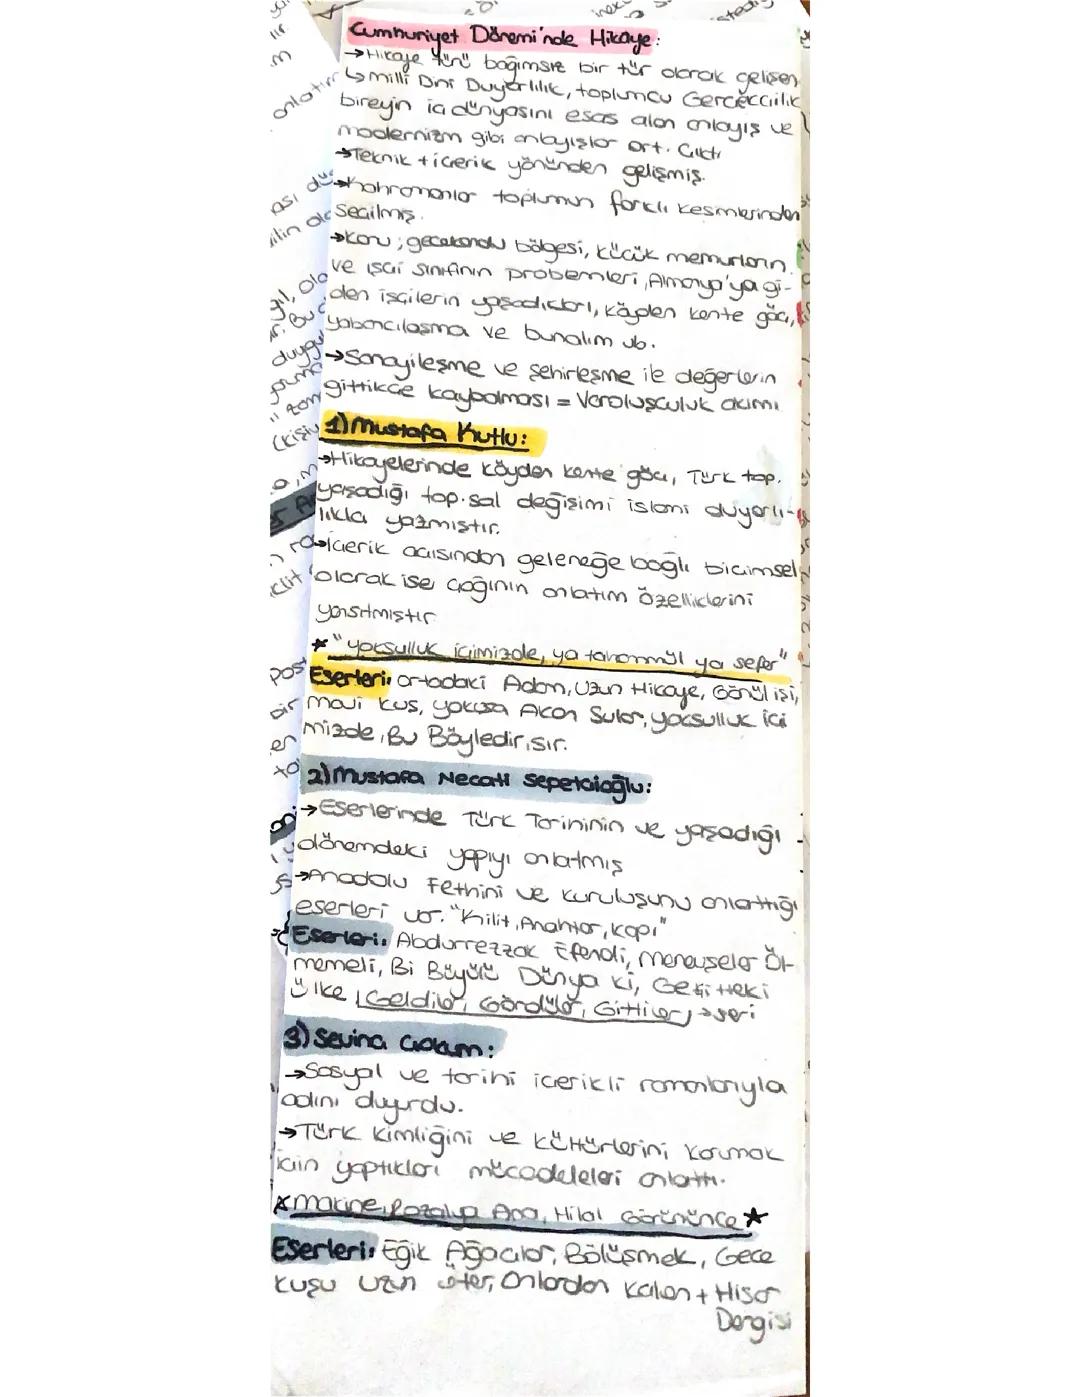 Cumhuriyet Dönemi'nde Hikaye:
→Hikaye türü bağımsız bir tür olarak gelişen
↳milli Dini Duyarlılık, toplumcu Gerçekçilik
bireyin iç dünyasını esas alan anlayış ve
modernizm gibi anlayışlar ort. Çıktı
→Teknik + içerik yönünden gelişmiş.
→Kahramanlar toplumun farklı kesimlerinden
Seçilmiş.
→Konu; gecekondu bölgesi, küçük memurların
ve işçi sınıfının problemleri, Almanya'ya gi-
den işçilerin yaşadıkları, köyden kente göç,
yabancılaşma ve bunalım vb.
→Sanayileşme ve şehirleşme ile değerlerin
gittikçe kaybolması = Varoluşculuk akımı
1) Mustafa Kutlu:
→Hikayelerinde köyden kente göçü, Türk top.
yaşadığı top.sal değişimi islami duyarlı-
lıkla yazmıştır.
→İçerik açısından geleneğe bağlı biçimsel
olarak ise çağının anlatım özelliklerini
yansıtmıştır
* "yoksulluk içimizde, ya tahammül ya sefer"
Eserleri: ortadaki Adam, Uzun Hikaye, Gönül işi,
mavi kuş, yokuşa Akan Sular, yoksulluk içi
mizde, Bu Böyledir, sır.
2) Mustafa Necati Sepetçioğlu:
→Eserlerinde Türk Tarihinin ve yaşadığı
dönemdeki yapıyı anlatmış
→Anadolu Fethini ve kuruluşunu anlattığı
eserleri var. "Kilit, Anahtar, Kapı"
Eserleri: Abdürrezzak Efendi, menevşeler Öl-
memeli, Bi Büyülü Dünya ki, Geçitteki
Ülke (Geldiler, Gördüler, Gittiler) →seri
3) Sevinç Çokum:
→Sosyal ve tarihi içerikli romanlarıyla
adını duyurdu.
→Türk kimliğini ve kültürlerini korumak
için yaptıkları mücadeleleri anlattı.
*makine, Rozalya Ana, Hilal Görününce ★
Eserleri: Eğik Ağaçlar, Bölüşmek, Gece
kuşu uzun öter, Onlardan Kalan + Hisar
Dergisi